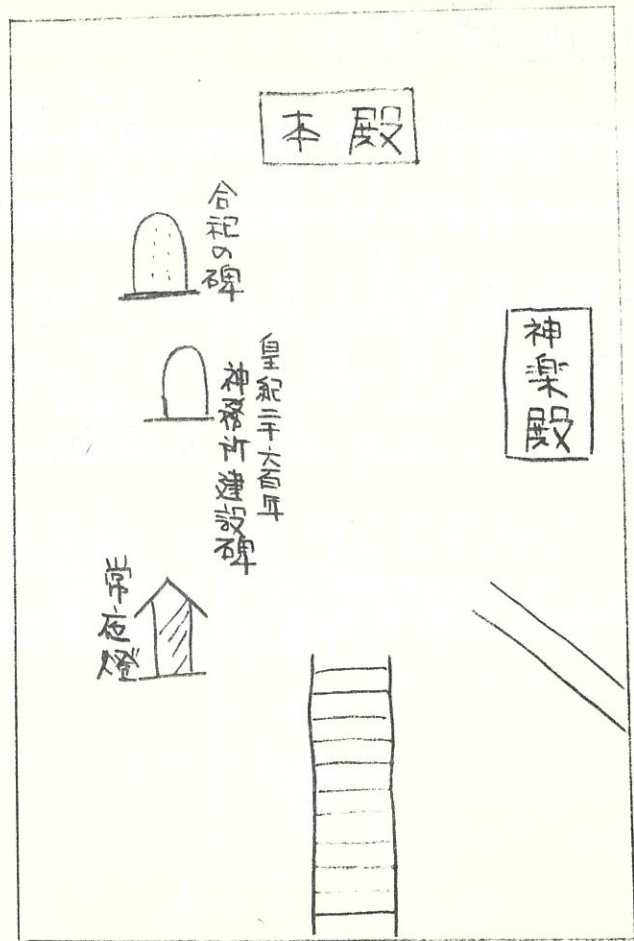 本殿
合祀の碑
神楽殿
皇紀二千六百年
神務所建設碑
常夜燈